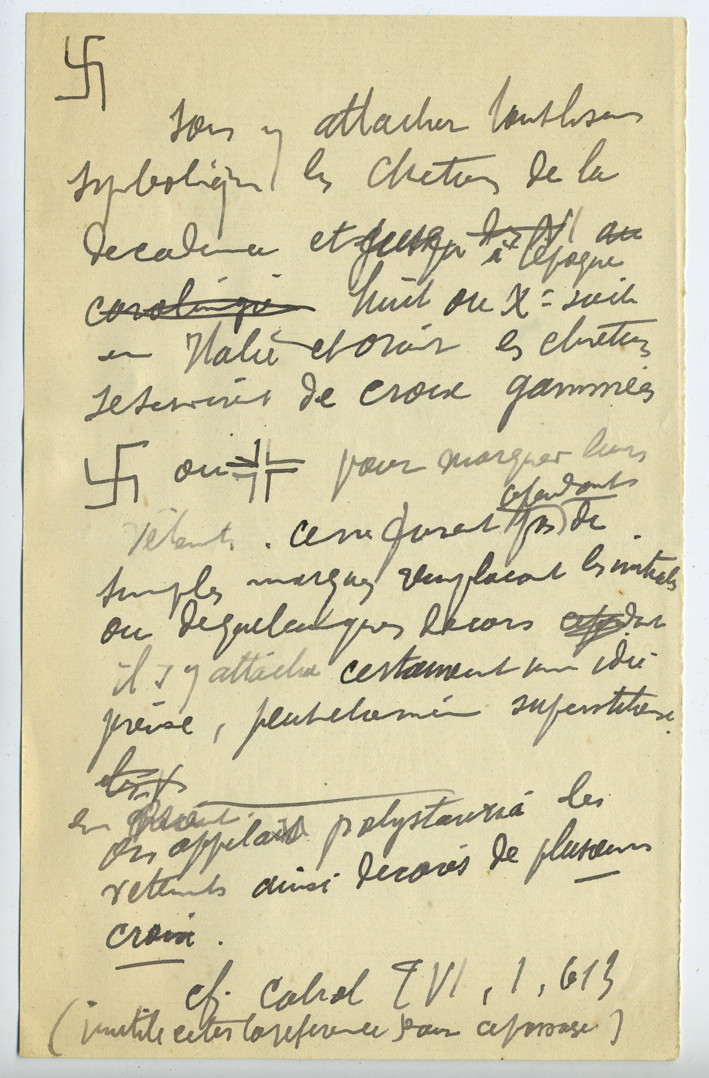 sans y attacher tout le sens
symbolique, les chretiens de la
decadence et jusqu à l'epoque
carolingie huit ou Xe siecle
en Italie et orient les chretiens
se servirent de croix gammées
ou pour marquer leurs
cependants
vêtements. ce ne furent pas de
simples marques remplacant les initiales
ou de quelconques decors
il s y attacha certainement une idée
precise, peut etre même superstitieuse.
en orient
on appelait polystauria les
vettements ainsi decorés de plusieurs
croix.
cf. Cabrol T VI, 1, 613
(inutile citer la reference pour ce passage)